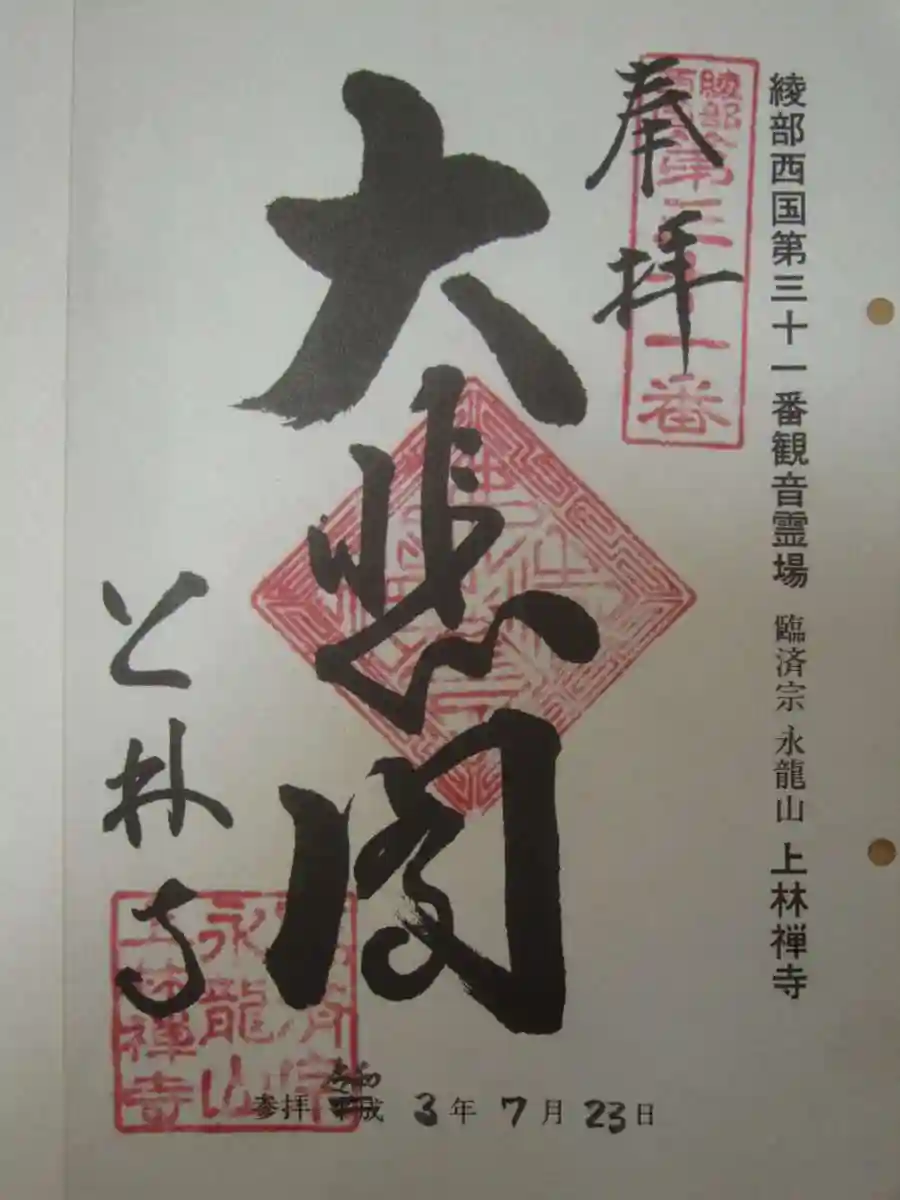 綾部西国第三十一番観音霊場 臨済宗 永龍山 上林禅寺
奉拝
綾部西国
第三十一番
大悲閣
上林寺
臨済宗
永龍山
上林禅寺
参拝 平成 令和 3年 7月 23日